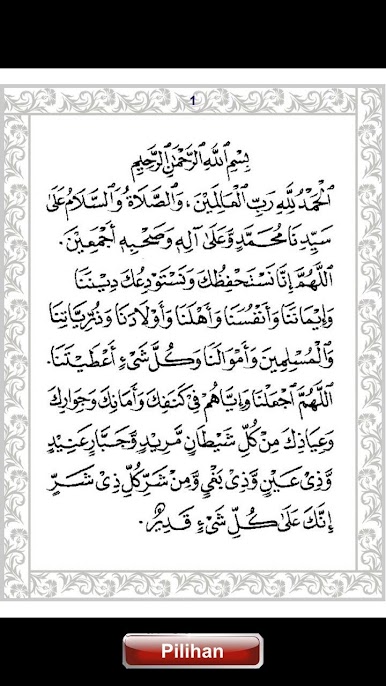 1
بِسْمِ ٱللَّهِ ٱلرَّحْمٰنِ ٱلرَّحِيْمِ
اَلْحَمْدُ لِلَّهِ رَبِّ الْعَالَمِيْنَ، وَٱلصَّلَاةُ وَٱلسَّلَامُ عَلَى
سَيِّدِنَا مُحَمَّدٍ وَّعَلَى آلِهِ وَصَحْبِهِ أَجْمَعِيْنَ.
اَللَّهُمَّ إِنَّا نَسْتَحْفِظُكَ وَنَسْتَوْدِعُكَ دِيْنَنَا
وَإِيْمَانَنَا وَأَنْفُسَنَا وَأَهْلَنَا وَأَوْلَادَنَا وَذُرِّيَّاتِنَا
وَالْمُسْلِمِيْنَ وَأَمْوَالَنَا وَكُلَّ شَيْءٍ أَعْطَيْتَنَا.
اَللَّهُمَّ اجْعَلْنَا وَإِيَّاهُمْ فِيْ كَنَفِكَ وَأَمَانِكَ وَجِوَارِكَ
وَعِيَاذِكَ مِنْ كُلِّ شَيْطَانٍ مَّرِيْدٍ وَّجَبَّارٍ عَنِيْدٍ
وَّذِيْ عَيْنٍ وَّذِيْ بَغْيٍ وَّمِنْ شَرِّ كُلِّ ذِيْ شَرٍّ
إِنَّكَ عَلَى كُلِّ شَيْءٍ قَدِيْرٌ.
Pilihan